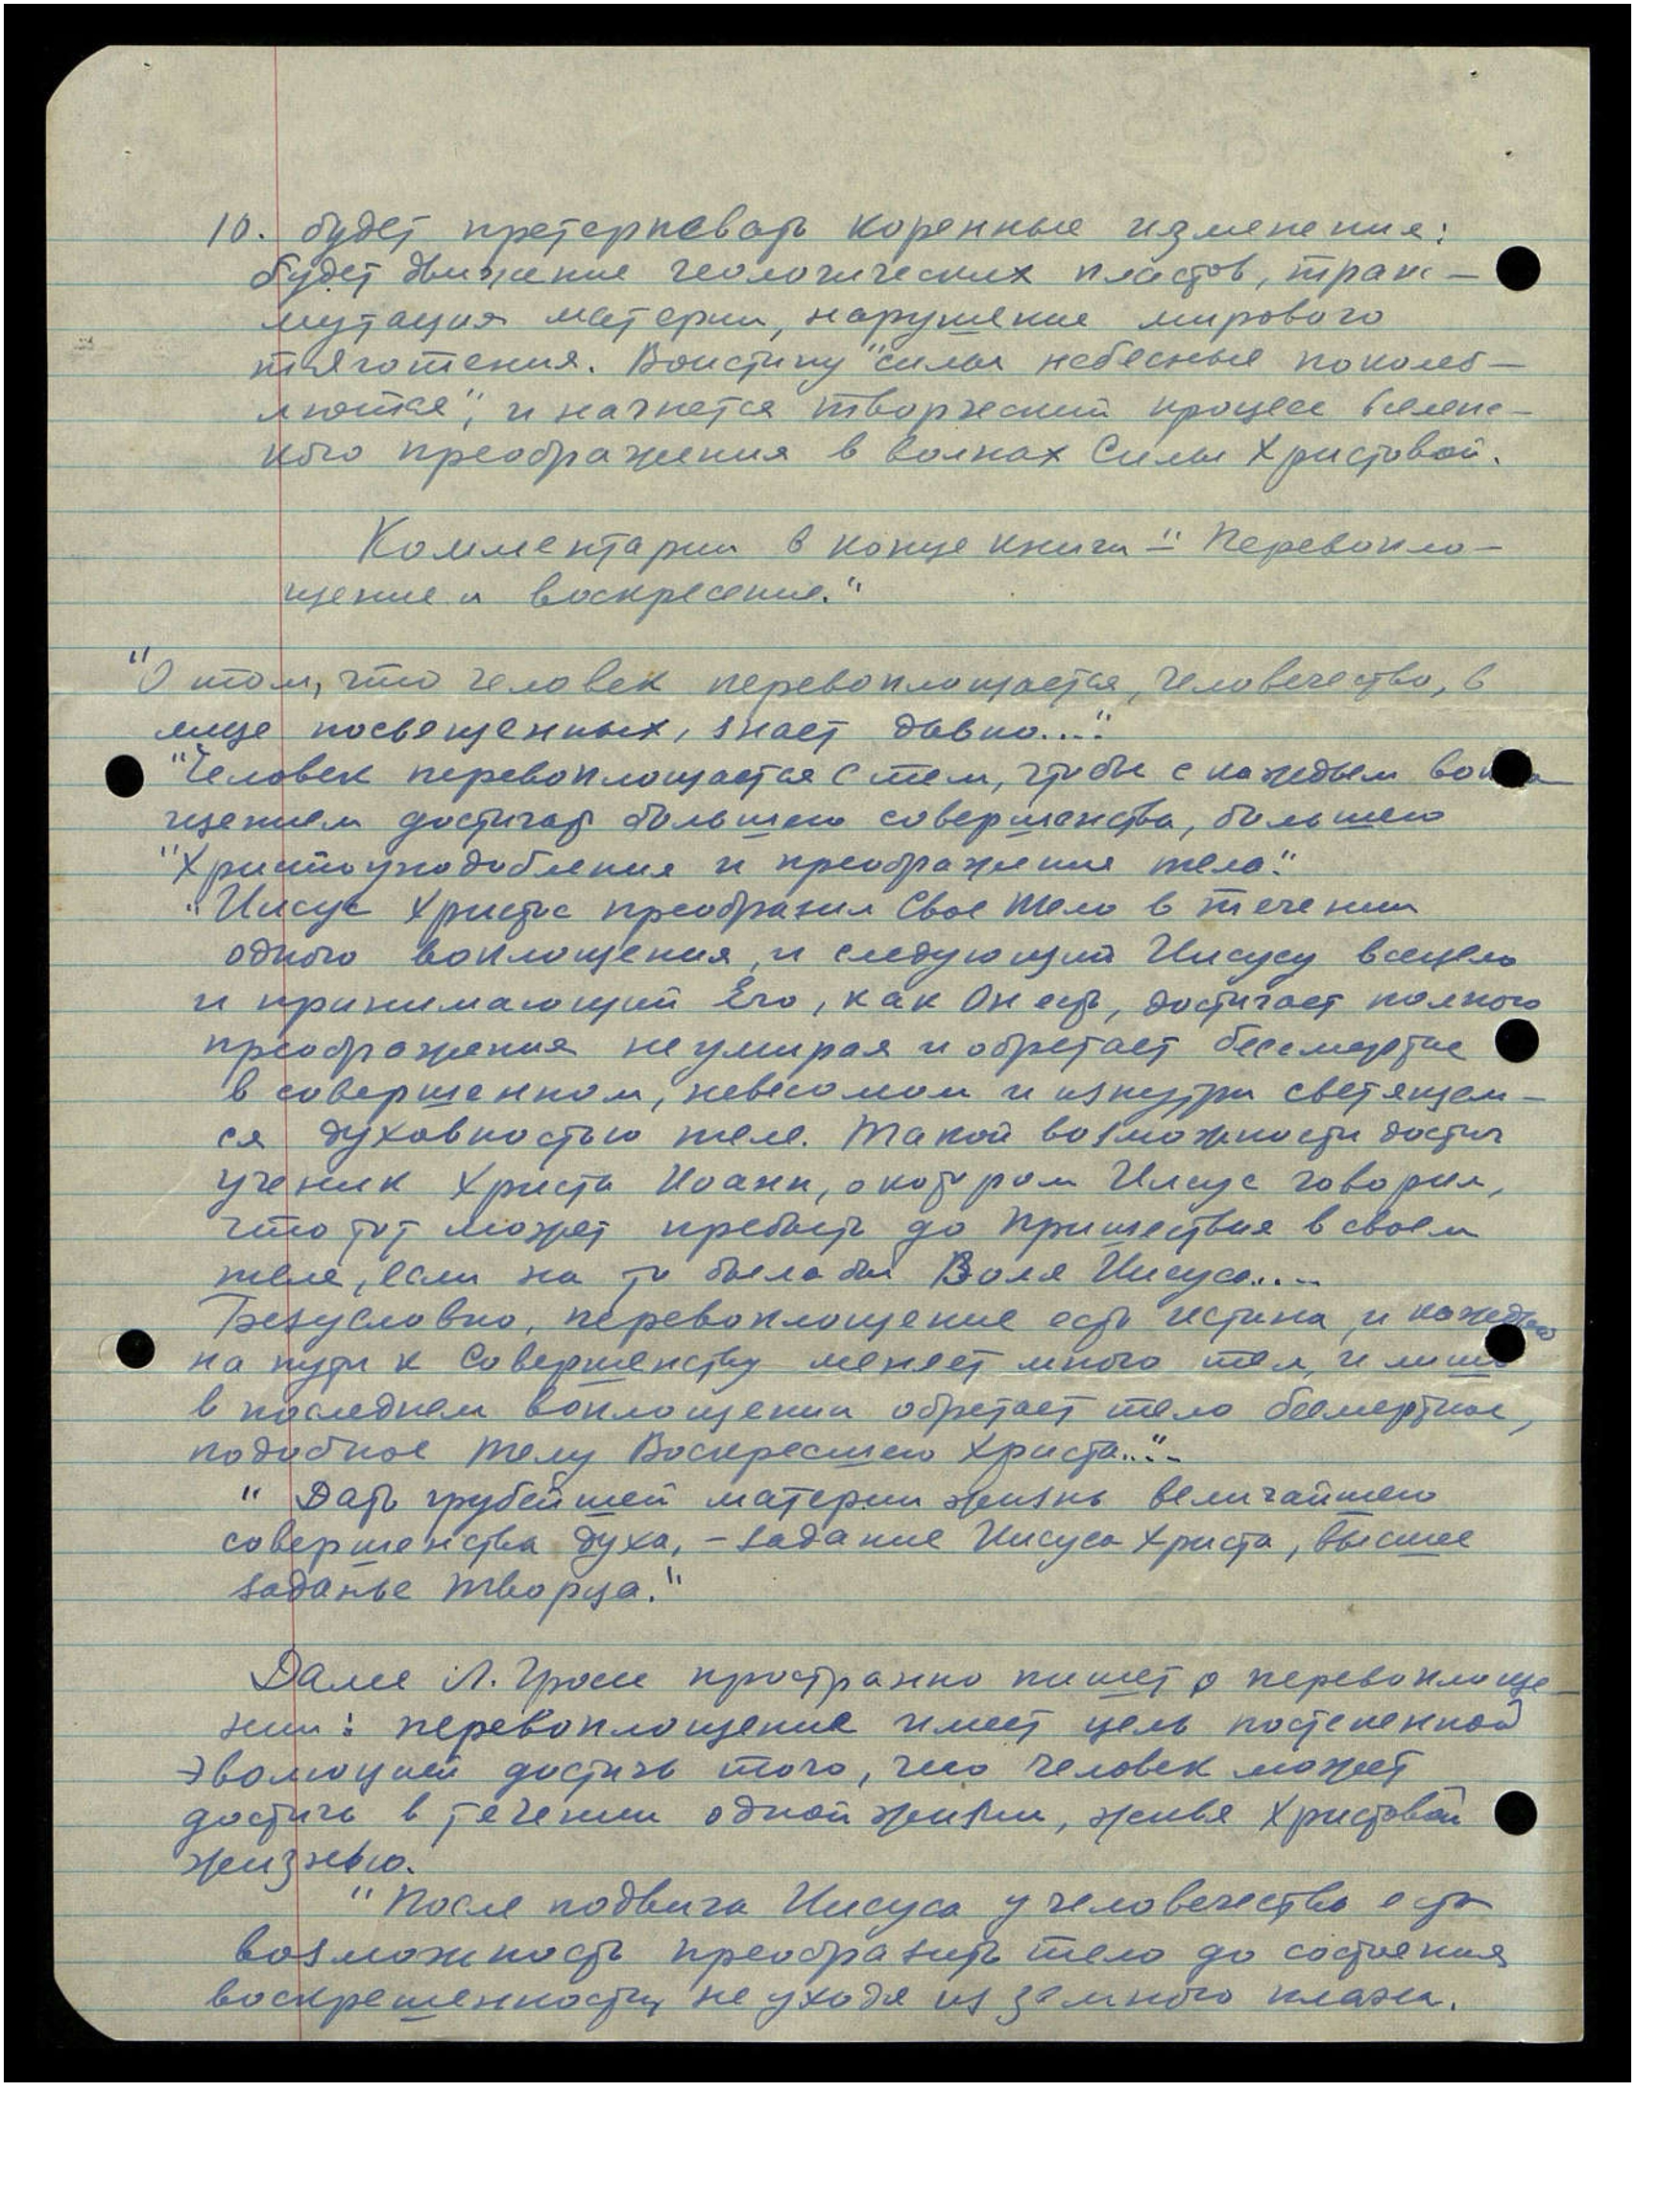 10. будет претерпевать коренные изменения:
будет движение геологических пластов, транс-
мутация материи, нарушение мирового
тяготения. Воистину "силы небесные поколеб-
лются", и начнется творческий процесс вселенс-
кого преображения в волнах Силы Христовой.
Комментарии в конце книги - "Перевопло-
щение и воскресение."
"О том, что человек перевоплощается, человечество, в
лице посвященных, знает давно..."
"Человек перевоплощается с тем, чтобы с каждым вопла-
щением достигать большего совершенства, большего
"Христоуподобления и преображения тела."
"Иисус Христос преобразил Свое Тело в течении
одного воплощения, и следующий Иисусу всецело
и принимающий Его, как Он есть, достигает полного
преображения не умирая и обретает бессмертие
в совершенном, невесомом и изнутри светящем-
ся духовностью теле. Такой возможности достиг
ученик Христа Иоанн, о котором Иисус говорил,
что тот может пребыть до Пришествия в своем
теле, если на то была бы Воля Иисуса....
Безусловно, перевоплощение есть истина, и каждый
на пути к Совершенству меняет много тел, и лишь
в последнем воплощении обретает тело бессмертное,
подобное Телу Воскресшего Христа..."
"Дать грубейшей материи жизнь величайшего
совершенства духа, - задание Иисуса Христа, высшее
заданье Творца."
Далее Л. Гроссе пространно пишет о перевоплоще-
нии: перевоплощение имеет цель постепенной
эволюцией достичь того, чего человек может
достичь в течении одной жизни, живя Христовой
жизнью.
"После подвига Иисуса у человечества есть
возможность преобразить тело до состояния
воскрешенности, не уходя из земного плана.